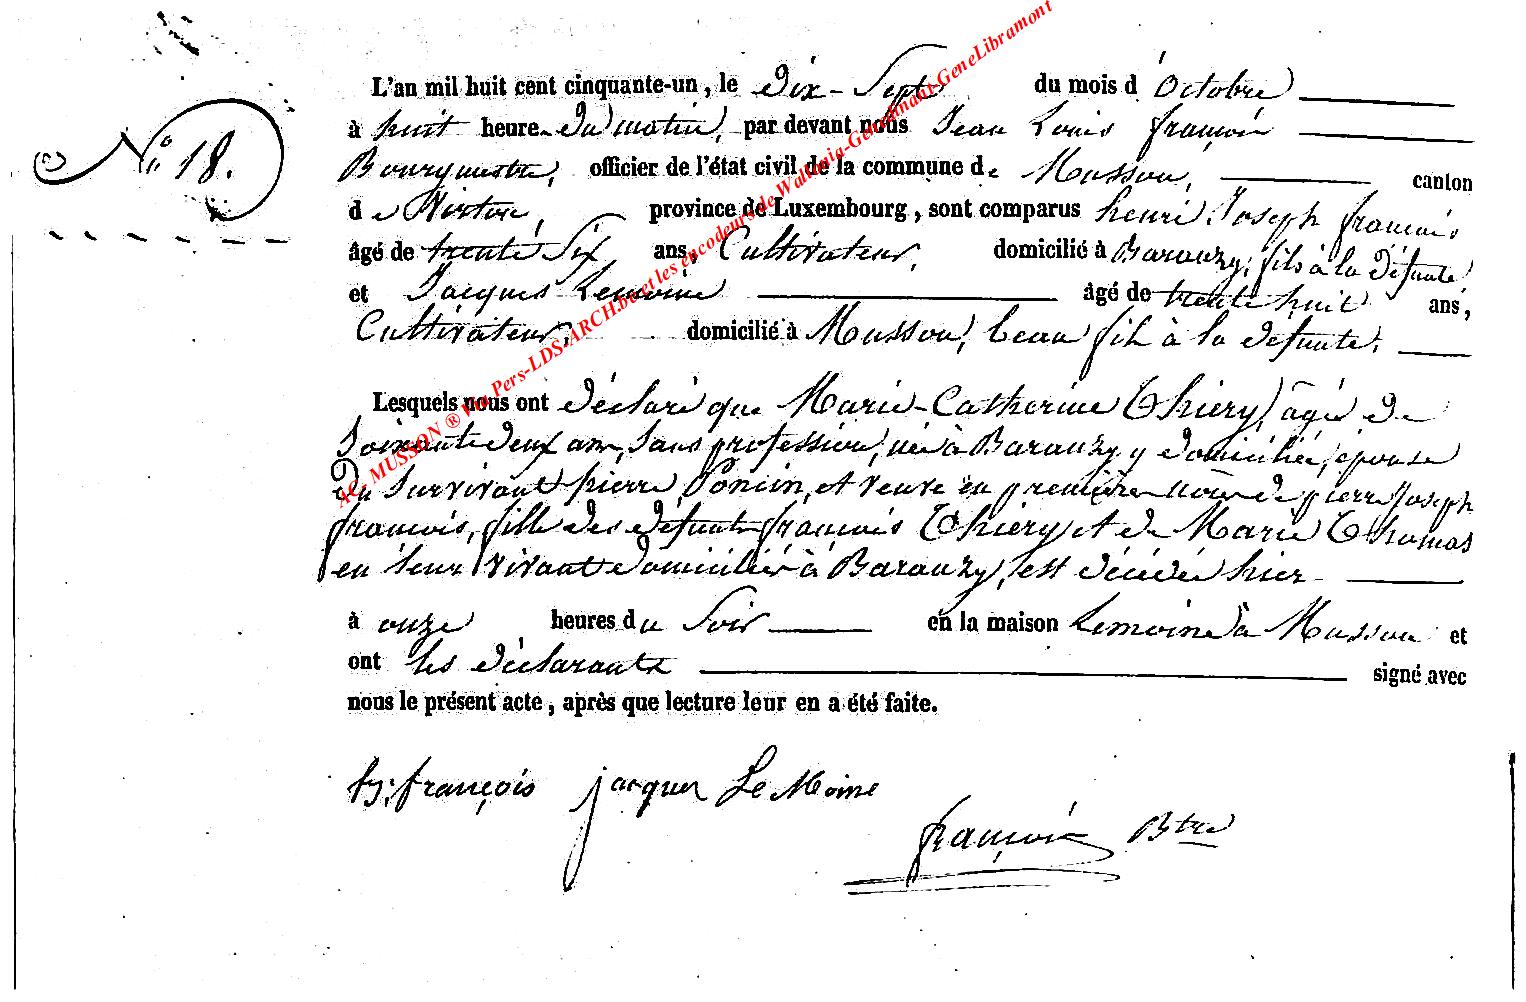 L'an mil huit cent cinquante-un, le dix-Sept du mois d'Octobre
N° 18.
à huit heure du matin, par devant nous Jean Louis françois
Bourgmestre, officier de l'état civil de la commune de Musson, canton
de Virton, province de Luxembourg, sont comparus henri Joseph françois
âgé de trente Six ans, Cultivateur, domicilié à Baranzy, fils à la défunte
et Jacques Lemoine âgé de trente huit ans,
Cultivateur, domicilié à Musson, beau fils à la défunte,
Lesquels nous ont déclaré que Marie-Catherine Thiery, âgée de
Soixante deux ans, Sans profession, née à Baranzy y domiciliée, épouse
Du Survivant pierre Poncin, et veuve en première noce de pierre Joseph
françois, fille des défunts françois Thiery et de Marie Thomas
en leur vivant domiciliés à Baranzy, est décédée hier
à onze heures du Soir en la maison Lemoine à Musson et
ont les déclarants signé avec
nous le présent acte, après que lecture leur en a été faite.
hj: françois jacques Le Moine
françois Btre
AC. MUSSON ® via Pers-LDS-ARCH.be et les encodeurs de Wallonia-Geneadinant-GeneLibramont